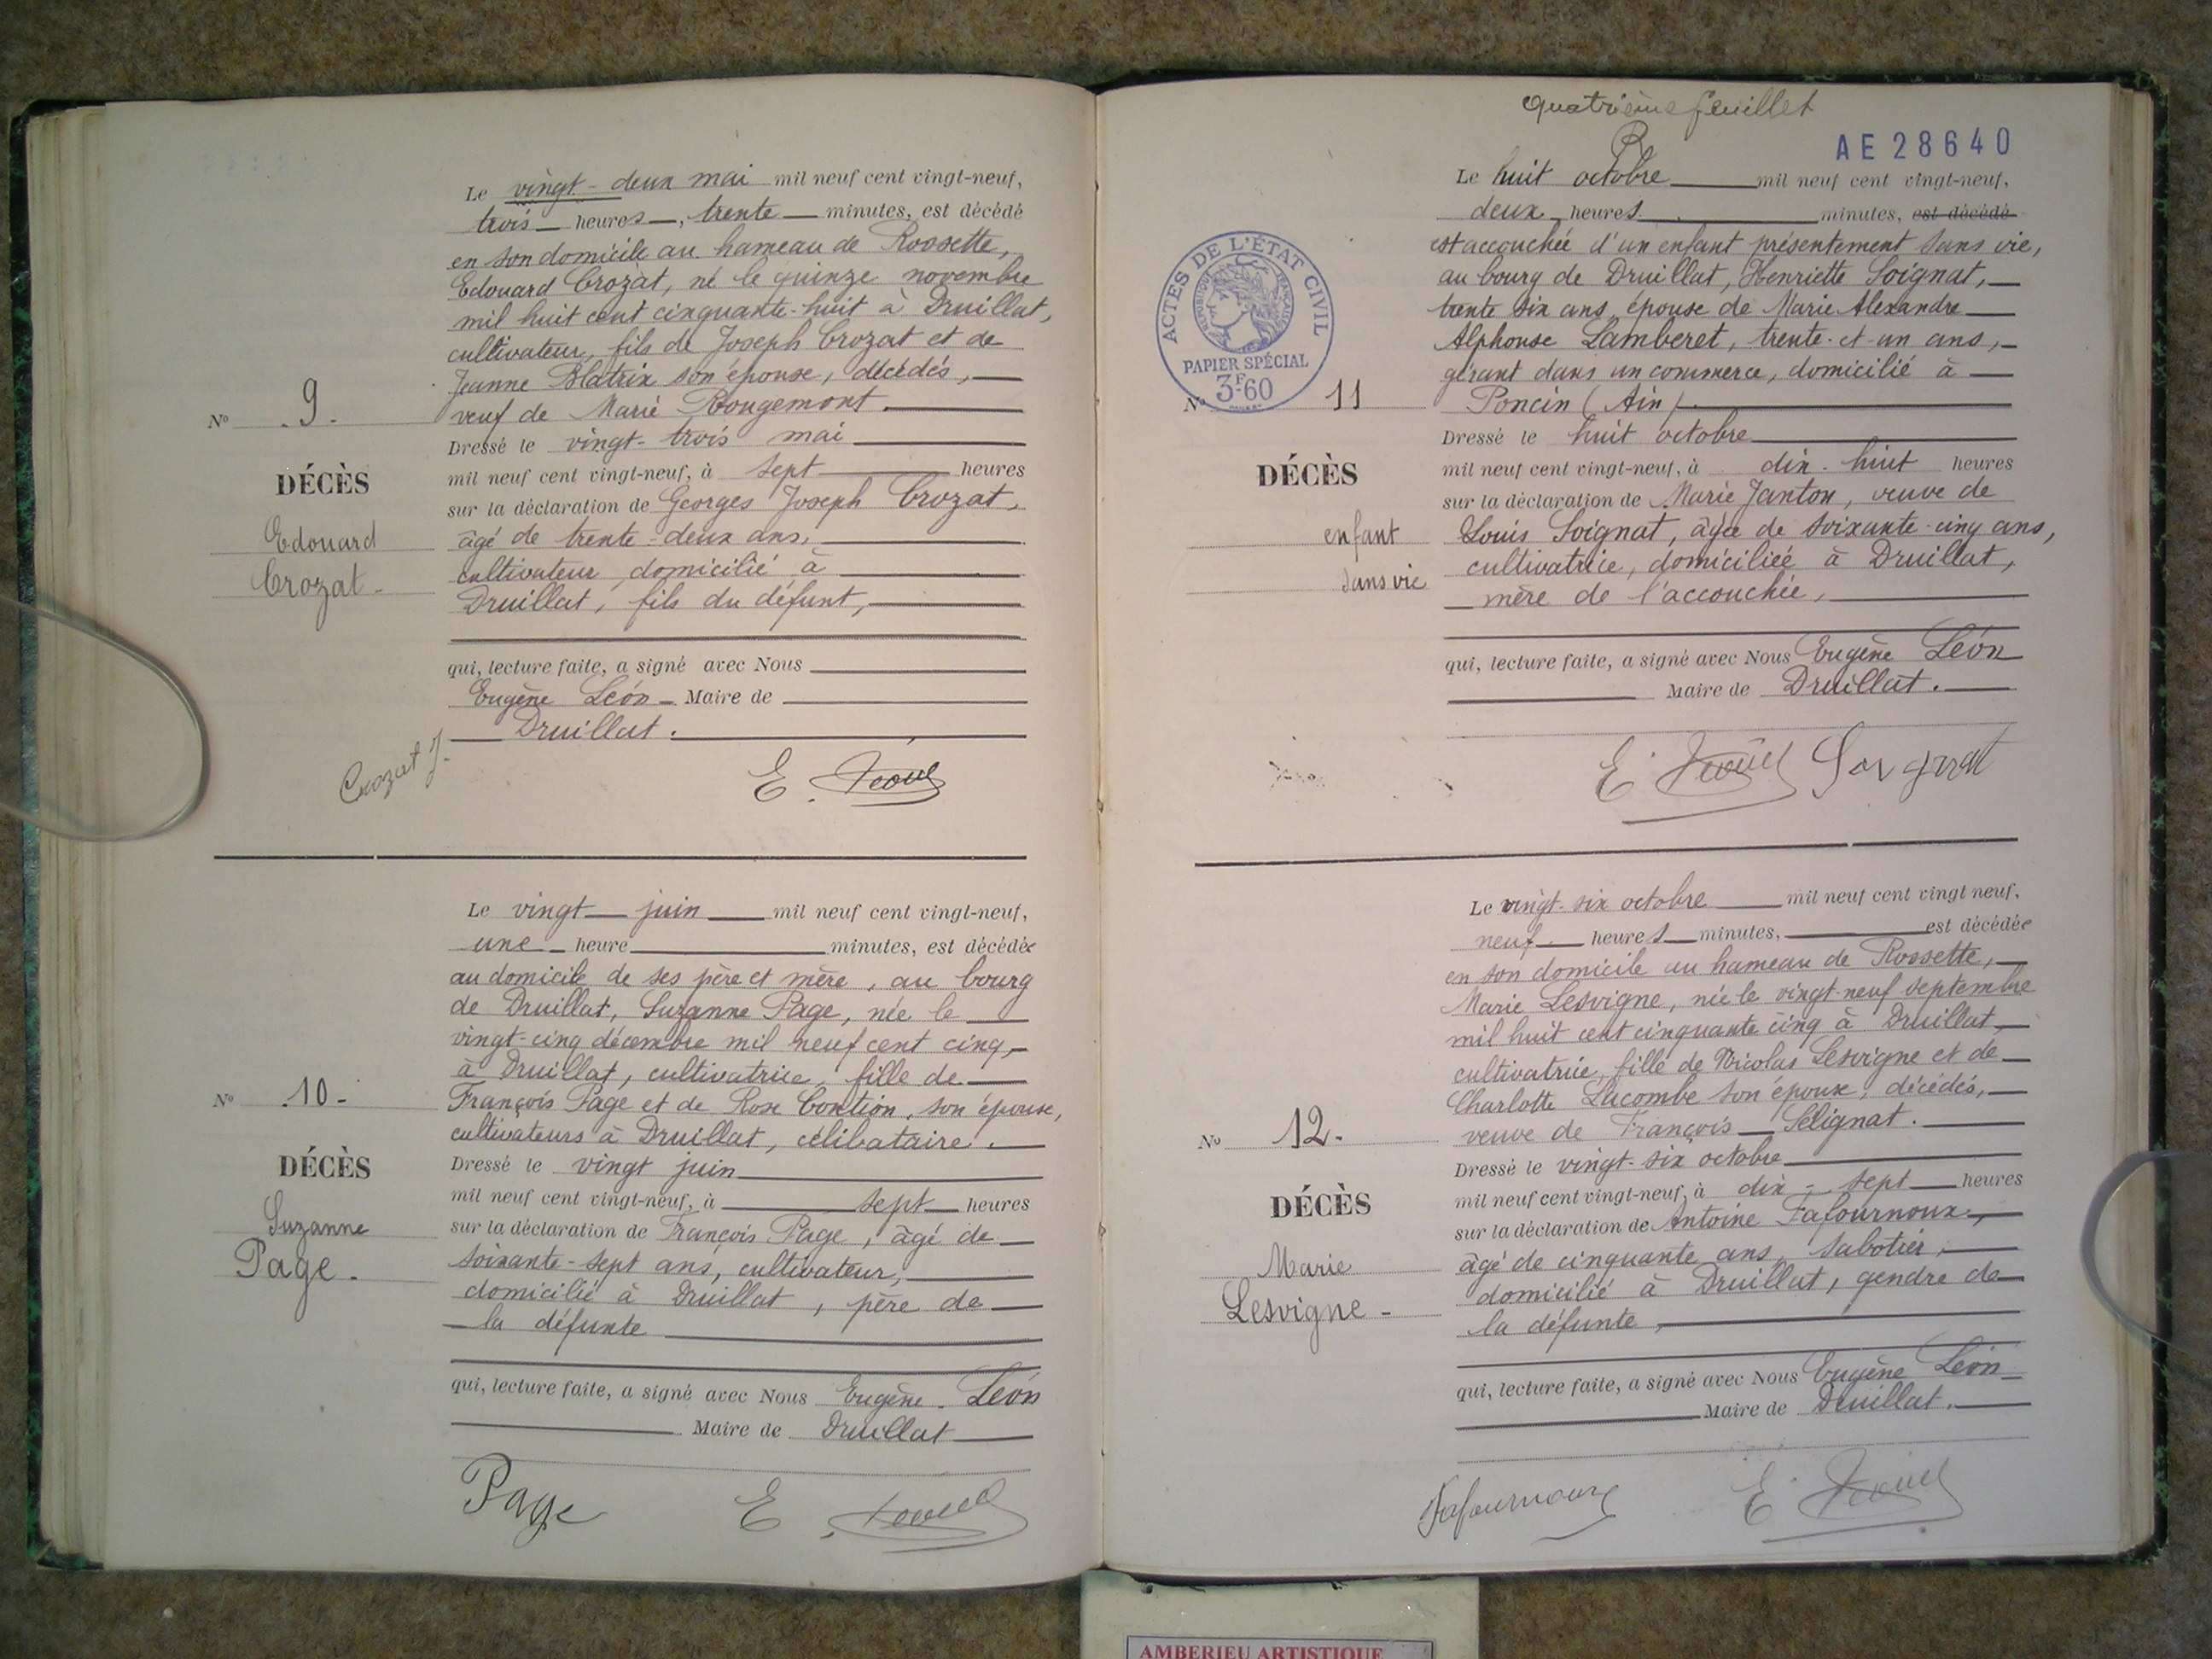 Le vingt-deux mai mil neuf cent vingt-neuf,
trois heures, trente minutes, est décédé
en son domicile au hameau de Rossette,
Edouard Crozat, né le quinze novembre
mil huit cent cinquante-huit à Druillat,
cultivateur, fils de Joseph Crozat et de
Jeanne Blatrix son épouse, décédés,
veuf de Marie Rougemont.
No 9.
Dressé le vingt-trois mai
mil neuf cent vingt-neuf, à sept heures
DÉCÈS
sur la déclaration de Georges Joseph Crozat,
Edouard
âgé de trente-deux ans,
Crozat-
cultivateur, domicilié à
Druillat, fils du défunt,
qui, lecture faite, a signé avec Nous
Eugène Léon - Maire de
Druillat.
Crozat J.
E. Léon
Le vingt juin mil neuf cent vingt-neuf,
une heure minutes, est décédée
au domicile de ses père et mère, au bourg
de Druillat, Suzanne Page, née le
vingt-cinq décembre mil neuf cent cinq,
à Druillat, cultivatrice, fille de
No 10-
François Page et de Rose Contion, son épouse,
cultivateurs à Druillat, célibataire.
DÉCÈS
Dressé le vingt juin
mil neuf cent vingt-neuf, à sept heures
Suzanne
Page-
sur la déclaration de François Page, âgé de
soixante-sept ans, cultivateur,
domicilié à Druillat, père de
la défunte
qui, lecture faite, a signé avec Nous Eugène Léon
Maire de Druillat
Page E. Léon
quatrième feuillet
AE 28640
Le huit octobre mil neuf cent vingt-neuf,
deux heures minutes, est décédé
est accouchée d'un enfant présentement sans vie,
au bourg de Druillat, Henriette Soignat,
trente six ans, épouse de Marie Alexandre
Alphonse Lamberet, trente-et-un ans,
gérant dans un commerce, domicilié à
Poncin (Ain).
ACTES DE L'ÉTAT CIVIL
RÉPUBLIQUE FRANÇAISE
PAPIER SPÉCIAL
3F60
No 11
Dressé le huit octobre
DÉCÈS
mil neuf cent vingt-neuf, à dix-huit heures
sur la déclaration de Marie Janton, veuve de
enfant
sans vie
Louis Soignat, âgée de soixante-cinq ans,
cultivatrice, domiciliée à Druillat,
mère de l'accouchée,
qui, lecture faite, a signé avec Nous Eugène Léon
Maire de Druillat.
E. Léon Soignat
Le vingt-six octobre mil neuf cent vingt neuf,
neuf heures minutes, est décédée
en son domicile au hameau de Rossette,
Marie Lesvigne, née le vingt-neuf septembre
mil huit cent cinquante cinq à Druillat
cultivatrice, fille de Nicolas Lesvigne et de
Charlotte Lacombe son épouse, décédés,
No 12-
veuve de François Sélignat.
Dressé le vingt-six octobre
DÉCÈS
mil neuf cent vingt-neuf, à dix-sept heures
sur la déclaration de Antoine Lafournoux,
Marie
Lesvigne-
âgé de cinquante ans, sabotier,
domicilié à Druillat, gendre de
la défunte,
qui, lecture faite, a signé avec Nous Eugène Léon
Maire de Druillat.
Lafournoux E. Léon
AMBERIEU ARTISTIQUE